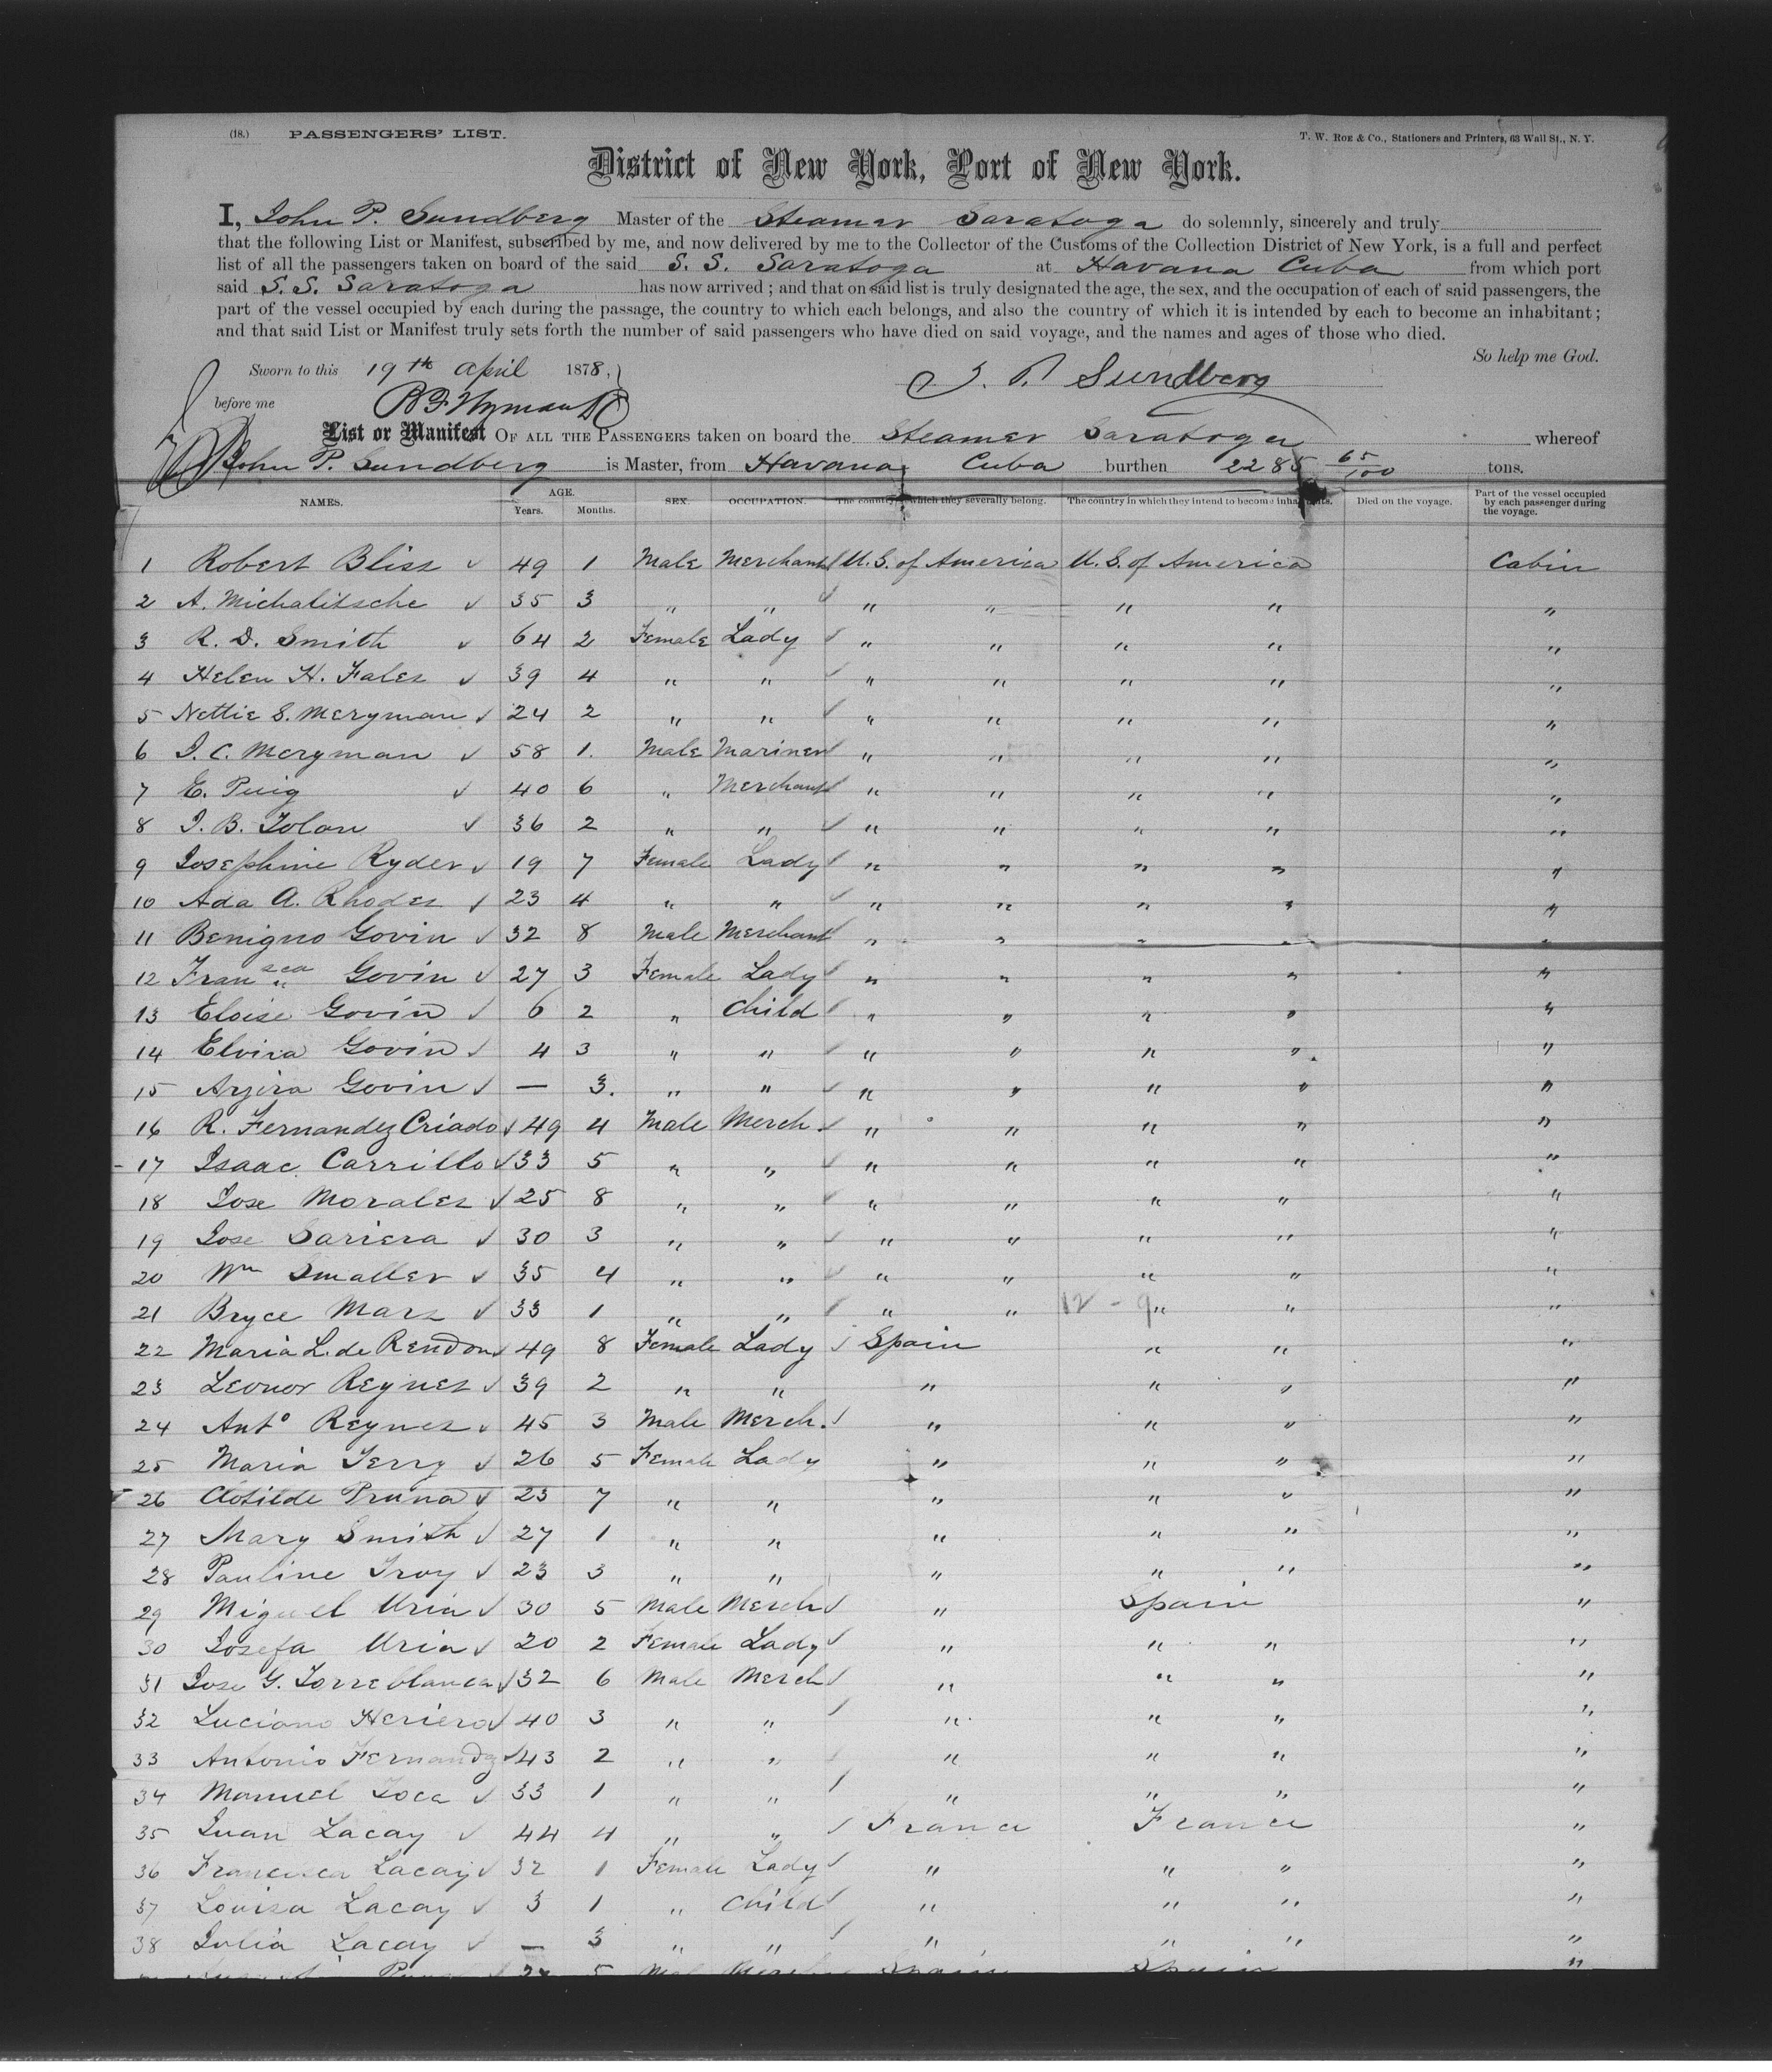 (18.) PASSENGERS' LIST. T. W. ROE & Co., Stationers and Printers, 63 Wall St., N. Y.
District of New York, Port of New York.
I, John P. Sundberg Master of the Steamer Saratoga do solemnly, sincerely and truly
that the following List or Manifest, subscribed by me, and now delivered by me to the Collector of the Customs of the Collection District of New York, is a full and perfect
list of all the passengers taken on board of the said S. S. Saratoga at Havana Cuba from which port
said S. S. Saratoga has now arrived; and that on said list is truly designated the age, the sex, and the occupation of each of said passengers, the
part of the vessel occupied by each during the passage, the country to which each belongs, and also the country of which it is intended by each to become an inhabitant;
and that said List or Manifest truly sets forth the number of said passengers who have died on said voyage, and the names and ages of those who died.
So help me God.
Sworn to this 19th April 1878,
J. P. Sundberg
before me
List or Manifest OF ALL THE PASSENGERS taken on board the Steamer Saratoga whereof
John P. Sundberg is Master, from Havana Cuba burthen 2285 65/100 tons.
NAMES. AGE. Years. Months. SEX. OCCUPATION. The country to which they severally belong. The country in which they intend to become inhabitants. Died on the voyage. Part of the vessel occupied by each passenger during the voyage.
1 Robert Bliss ✓ 49 1 Male Merchant U. S. of America U. S. of America Cabin
2 A. Michalitsche ✓ 35 3 " " " " " " "
3 R. D. Smith ✓ 64 2 Female Lady " " " " "
4 Helen H. Fales ✓ 39 4 " " " " " " "
5 Nettie S. Meryman ✓ 24 2 " " " " " " "
6 J. C. Meryman ✓ 58 1. Male Mariner " " " " "
7 E. Puig ✓ 40 6 " Merchant " " " " "
8 J. B. Tolon ✓ 36 2 " " " " " " "
9 Josephine Ryder ✓ 19 7 Female Lady " " " " "
10 Ada A. Rhodes ✓ 23 4 " " " " " " "
11 Benigno Govin ✓ 32 8 Male Merchant " " " " "
12 Fransca Govin ✓ 27 3 Female Lady " " " " "
13 Eloise Govin ✓ 6 2 " Child " " " " "
14 Elvira Govin ✓ 4 3 " " " " " " "
15 Arjira Govin ✓ — 3. " " " " " " "
16 R. Fernandez Criado ✓ 49 4 Male Merch. " " " " "
17 Isaac Carrillo ✓ 33 5 " " " " " " "
18 Jose Morales ✓ 25 8 " " " " " " "
19 Jose Sariera ✓ 30 3 " " " " " " "
20 Wm Smaller ✓ 35 4 " " " " " " "
21 Bryce Mars ✓ 33 1 " " " " 12 - 9 " " "
22 Maria L. de Rendon ✓ 49 8 Female Lady Spain " " "
23 Leonor Reynes ✓ 39 2 " " " " " "
24 Anto Reynes ✓ 45 3 Male Merch. " " " "
25 Maria Terry ✓ 26 5 Female Lady " " " "
26 Clotilde Pruna ✓ 23 7 " " " " " "
27 Mary Smith ✓ 27 1 " " " " " "
28 Pauline Troy ✓ 23 3 " " " " " "
29 Miguel Uria ✓ 30 5 Male Merch " Spain "
30 Josefa Uria ✓ 20 2 Female Lady " " " "
31 Jose G. Torreblanca ✓ 32 6 Male Merch " " " "
32 Luciano Heriero ✓ 40 3 " " " " " "
33 Antonio Fernandz ✓ 43 2 " " " " " "
34 Manuel Toca ✓ 33 1 " " " " " "
35 Juan Lacay ✓ 44 4 " " France France "
36 Francisca Lacay ✓ 32 1 Female Lady " " " "
37 Louisa Lacay ✓ 3 1 " Child " " " "
38 Julia Lacay ✓ — 3 " " " " " "
Spain Spain "